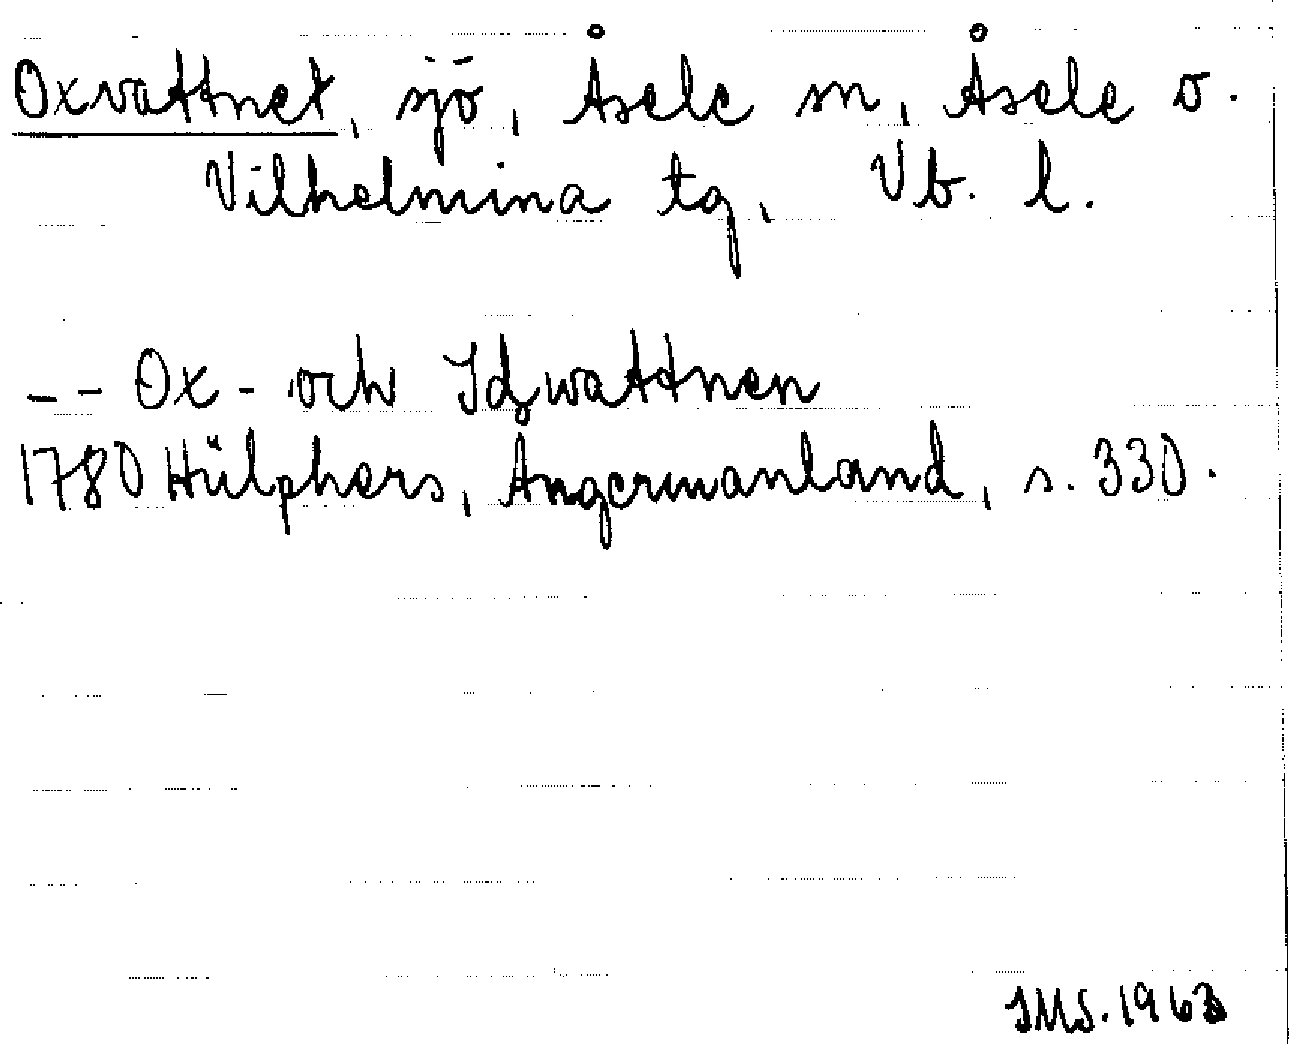 Oxvattnet, sjö, Åsele sn, Åsele o.
Vilhelmina tg, Vb. l.
-- Ox- och Idwattnen
1780 Hülphers, Angermanland, s. 330.
IMS. 1963